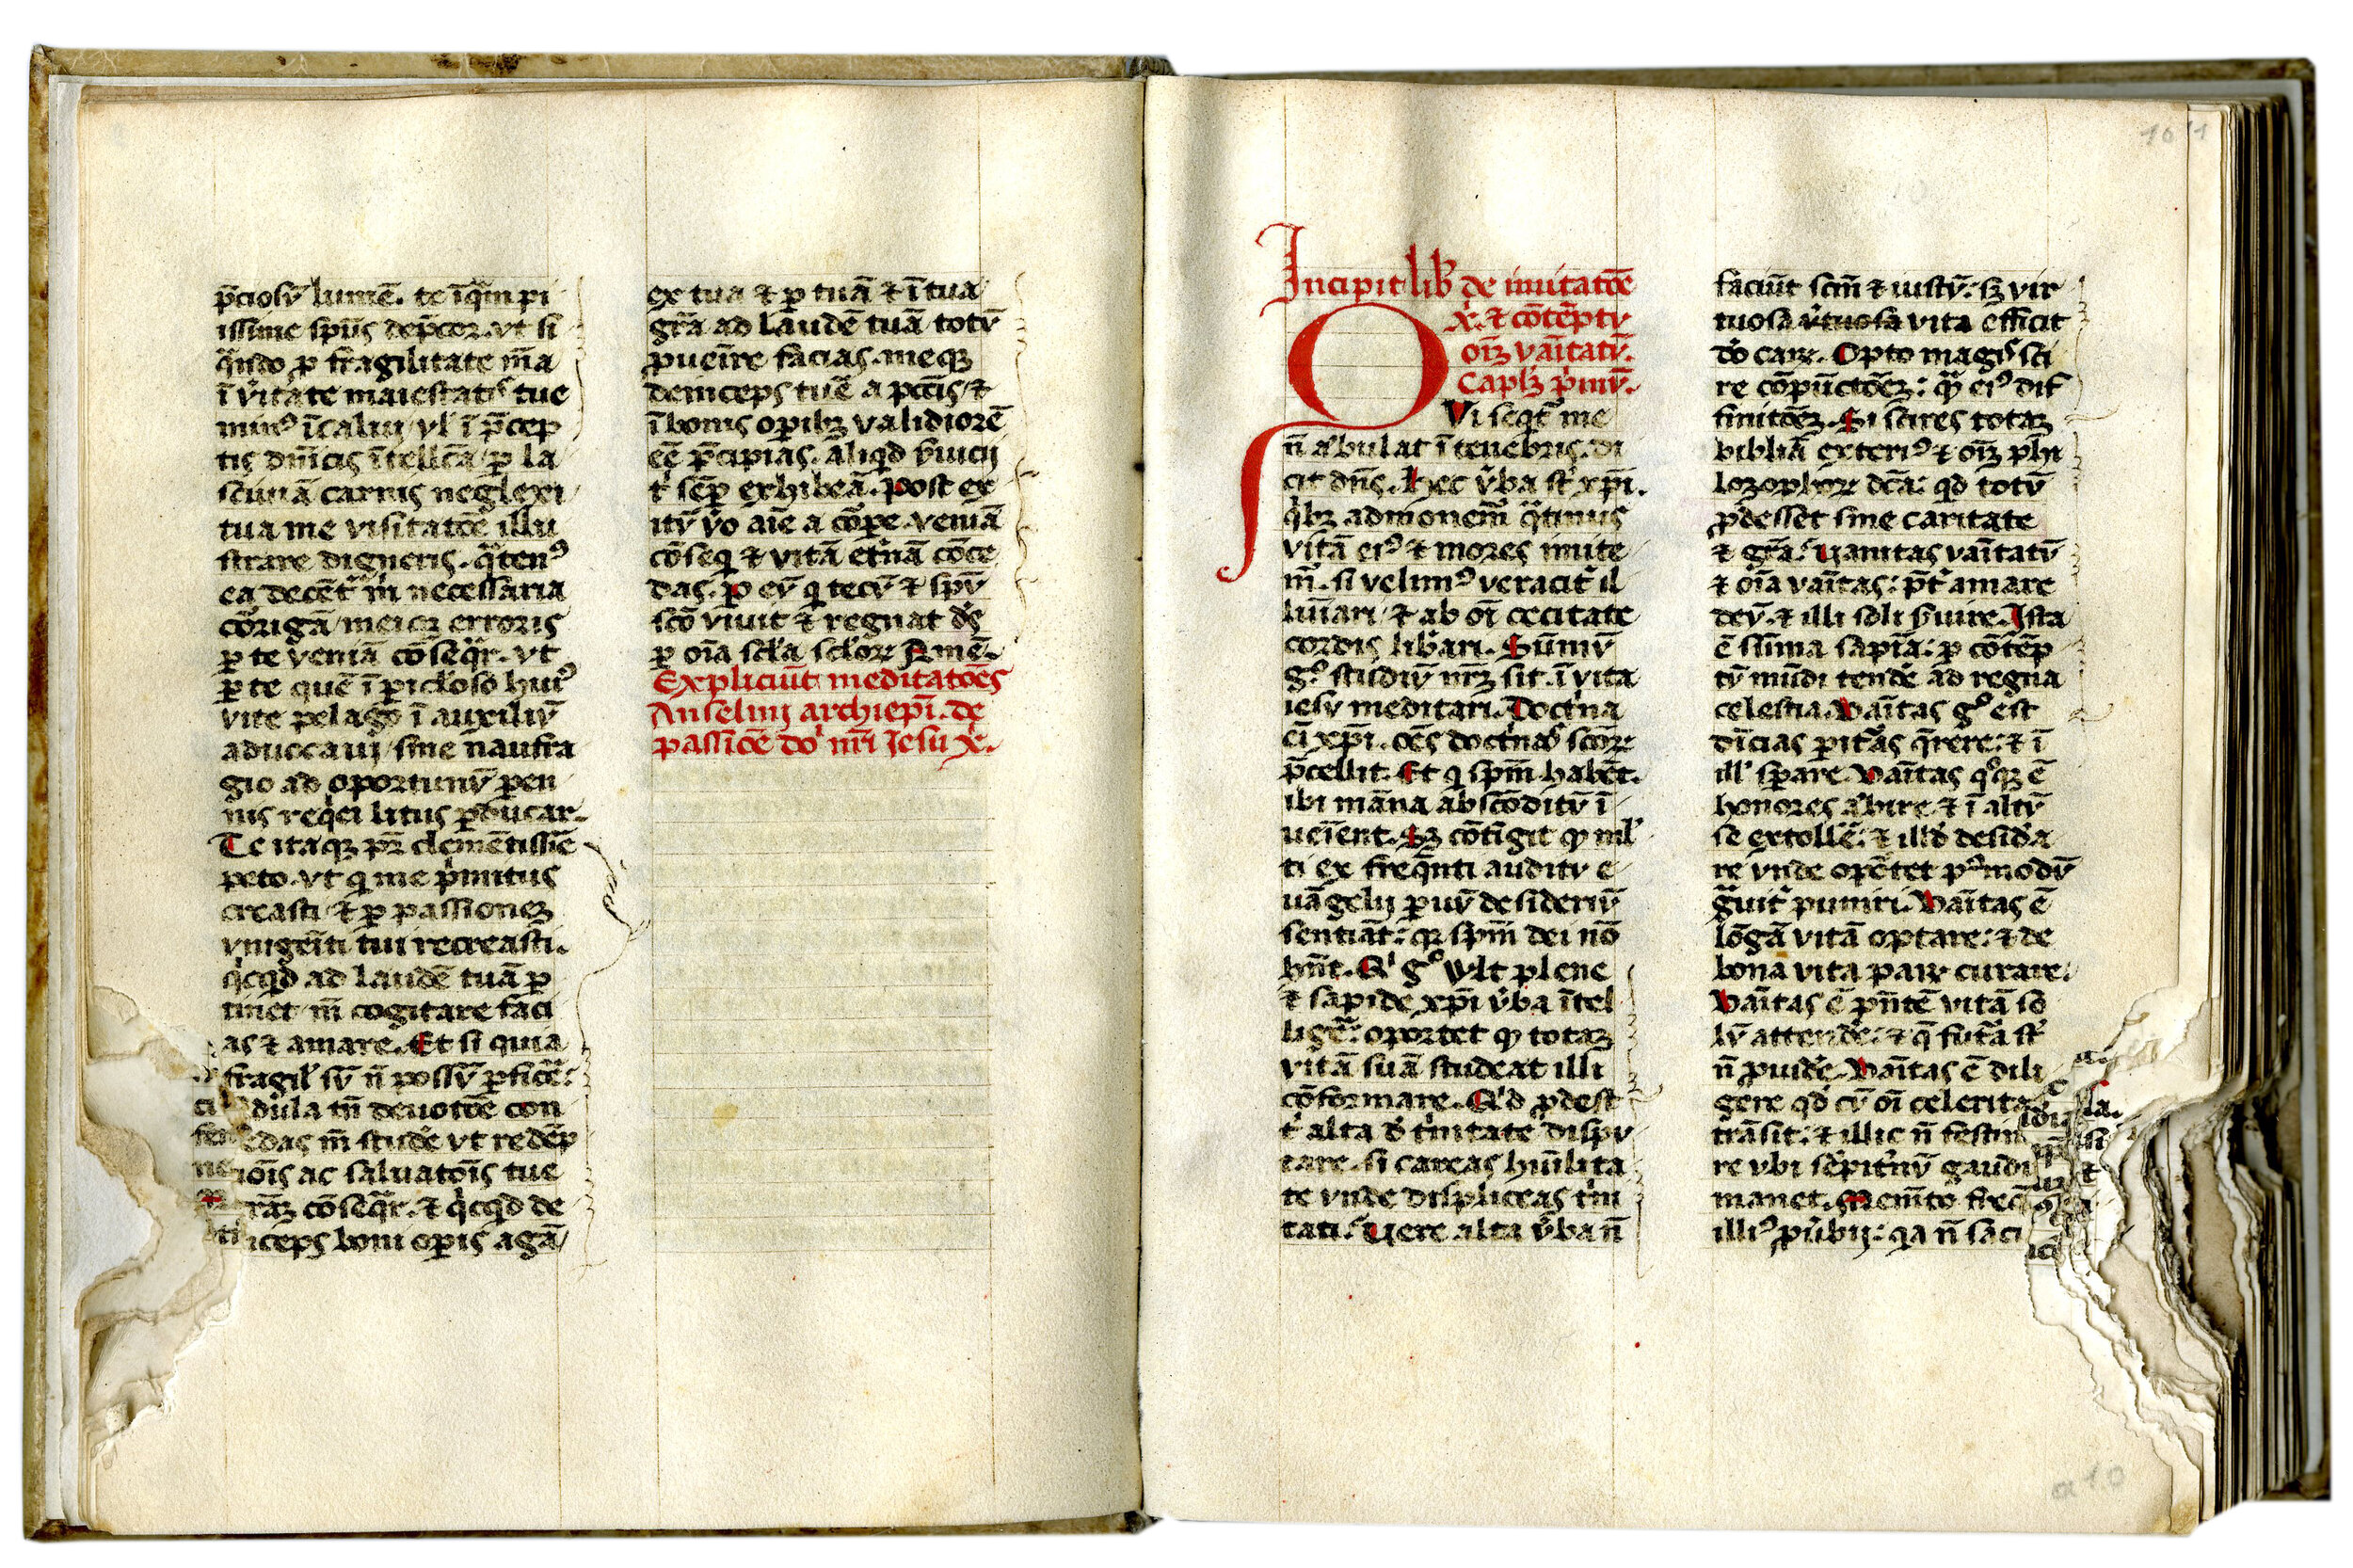 p̄ciosū lumē. te īq̄m pi
issime spūs dep̄cor. vt si
qn̄do ꝑ fragilitate m̄a
ī v̓itate maiestatꝭ tue
minꝰ īcalui / vl' ī p̄cep
tis dn̄icis ītellc̄a / ꝑ la
sciuiā carnis neglexi
tua me visitatōe illu
strare digneris. q̄tenꝰ
ea decēt̓ m̓ necessaria
cōrigā / meioꝝ erroris
ꝑ te veniā cōseq̄r. vt
ꝑ te quē ī ꝑicl'oso huiꝰ
vite pelago ī auxiliū
aduocaui / sine naufra
gio ad oportunū ꝑen
nis req̓ei litus ꝑducar.
Te itaqꝫ pr̄ clemētissīe
peto. vt q me p̓mitus
creasti / ⁊ ꝑ passionē
vnigeīti tui recreasti.
q̓cqd ad laudē tuā ꝑ
tinet / m̄ cogitare faci
as ⁊ amare. Et si quia
fragil' sū n̄ possū ꝑfice̓:
dula tn̄ deuotōe con
edas m̄ stude̓ vt redēp
iōis ac saluatōis tue
gr̄aꝫ cōseq̄r. ⁊ q̓cqd de
iceps boni oꝑis agā /
ex tua ⁊ ꝑ tuā ⁊ ī tua
gr̄a ad laudē tuā totū
ꝓueīre facias. meqꝫ
deniceps tuē a pcc̄is / ⁊
ī bonis oꝑibꝫ validiorē
eē p̄cipias. aliqd s̓uicij
t̓ semꝑ exhibeā. Post ex
itū v̓o aīe a corꝑe. veniā
cōseq ⁊ vitā et̓nā cōce
das. ꝑ eū q tecū ⁊ spū
scō viuit ⁊ regnat ds̄
ꝑ oīa scl'a scl'oꝝ Amē.
Expliciūt meditatōes
Anselmi archiep̄i. de
passīoe do' nr̄i Jesu x̄.
Incipit lib̓ de imitatōe
x̓. ⁊ cōtēptu
oīꝫ vaītatū.
Capl'ꝫ p̓mū.
QVi seqt̓ me
n̄ a'bulat ī tenebris. di
cit dn̄s. Hec v̓ba st̓ xp̄i.
q̓bꝫ admonem̄ q̄tinus
vitā eiꝰ ⁊ mores imite
m̄. si velimꝰ veracit̓ il
luīari / ⁊ ab oī cecitate
cordis lib̓ari. Sūmū
gͦ studiū nr̄ꝫ sit. ī vita
iesu meditari. Doct̓na
cī xp̄i. oēs doct̓nas scōꝝ
p̄cellit. Et q spm̄ habēt.
ibi māna abscōditū ī
ueīent. Sꝫ cōtīgit ꝙ ml'
ti ex freq̄nti auditu e
uāgelij ꝑuū desideriū
sentiāt: qꝛ spm̄ dei nō
hn̄t. Q' gͦ vult plene
⁊ sapide xp̄i v̓ba ītel
lige̓: oportet ꝙ totaꝫ
vitā suā studeat illi
cōformare. Q'd ꝓdest
t̓ alta d̓ t̓nitate dispu
tare. si careas hūilita
te vnde displiceas t̓ni
tati. Uere alta v̓ba n̄
faciūt scm̄ ⁊ iustū: sꝫ vir
tuosa v̓tuosa vita efficit
dō carꝝ. Opto magꝭ sci
re cōpūctōeꝫ: qꝫ eiꝰ dif
finitōeꝫ. Si scires totaꝫ
bibliā exteriꝰ ⁊ oīꝫ phi
lozophoꝝ dc̄a: qd totū
ꝓdesset sine caritate
⁊ gr̄a. Uanitas vaītatū
⁊ oīa vaītas: p̄t̓ amare
deū. ⁊ illi soli s̓uire. Ista
ē sūma sapīa: ꝑ cōtēp
tū mūdi tende̓ ad regna
celestia. Vaītas gͦ est
dīcias ꝑit̓as q̄rere: ⁊ ī
ill' sꝑare. Vaītas qͦqꝫ ē
honores a'bire ⁊ ī altū
se extolle̓. ⁊ ill'd desid̓a
re vnde opēet pͦmodū
g̓uit̓ puniri. Vaītas ē
lōgā vitā optare: ⁊ de
bona vita paꝝ curare.
Vaītas ē pn̄tē vitā so
lū attende̓: ⁊ q̄ fut̓a st̓
n̄ ꝓuide̓. Vaītas ē dili
gere qd cū oī celerita
trāsit: ⁊ illic n̄ festin
re vbi semꝑit̓nū gaudi
manet. Memēto freq̄
illiꝰ ꝓu̓bij: qa n̄ saci